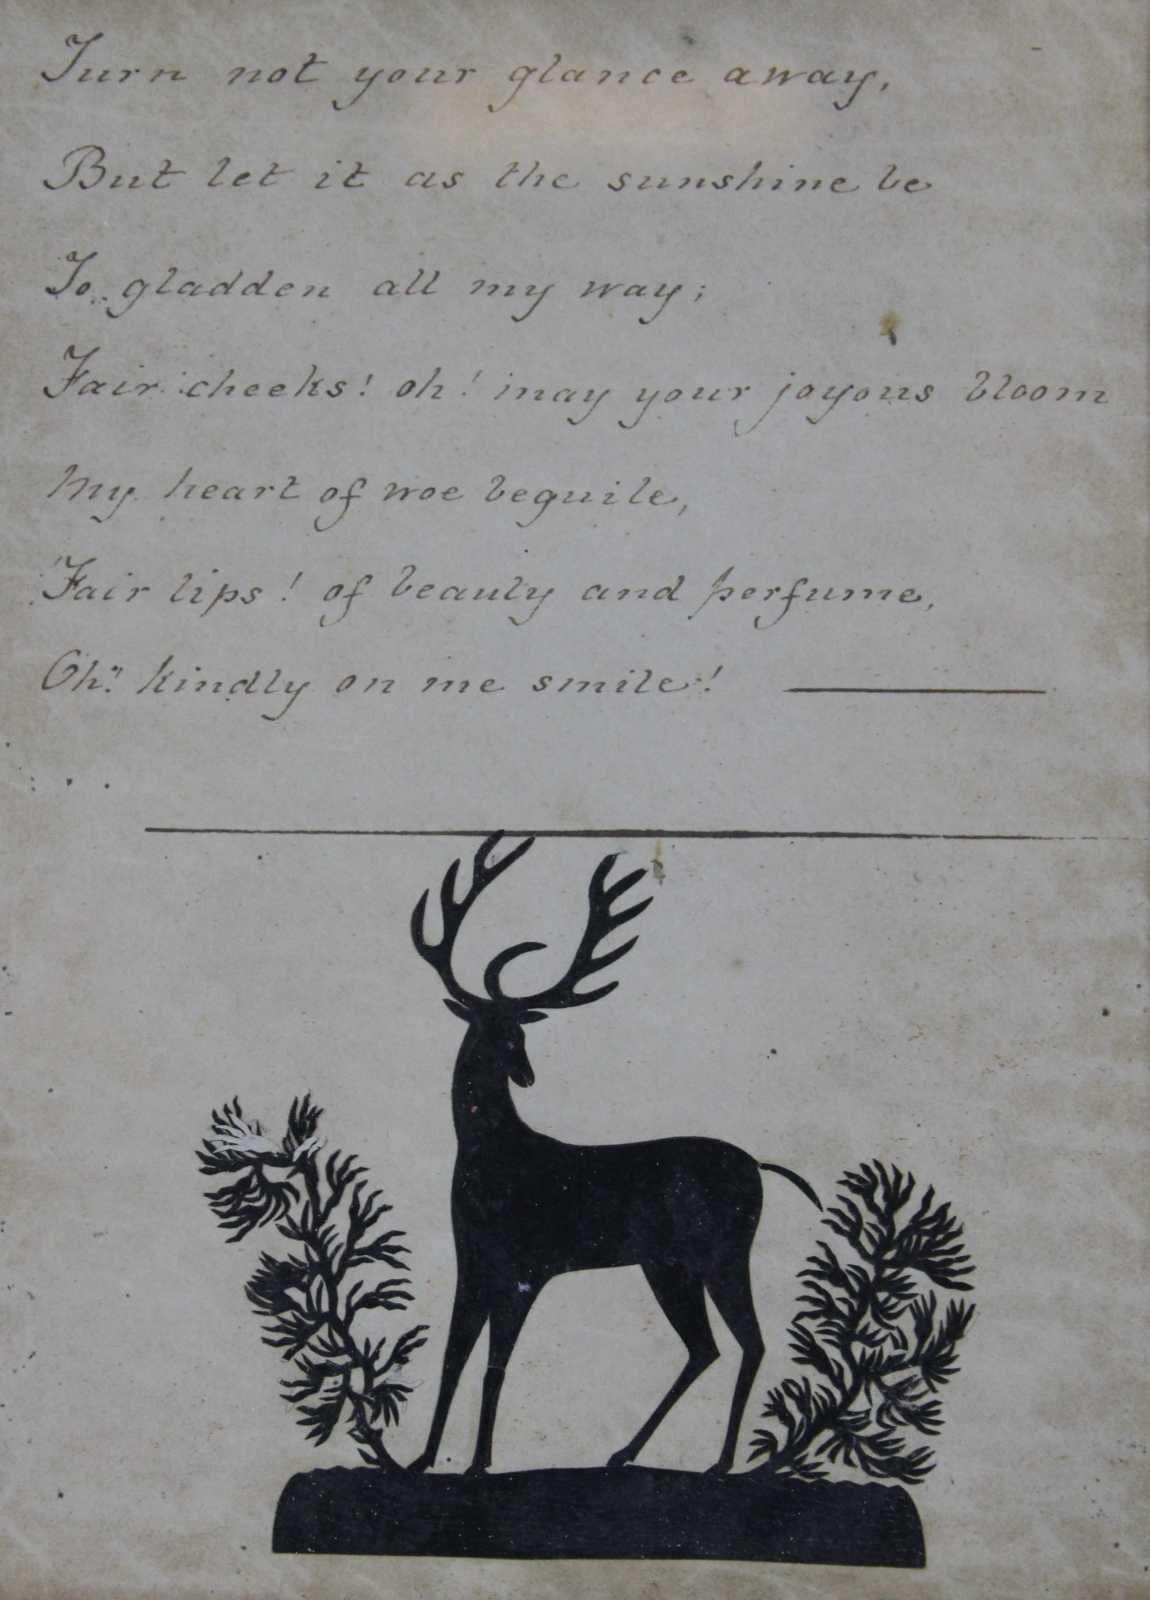 Turn not your glance away,
But let it as the sunshine be
To gladden all my way;
Fair cheeks! oh! may your joyous bloom
My heart of woe beguile,
Fair lips! of beauty and perfume,
Oh! kindly on me smile!